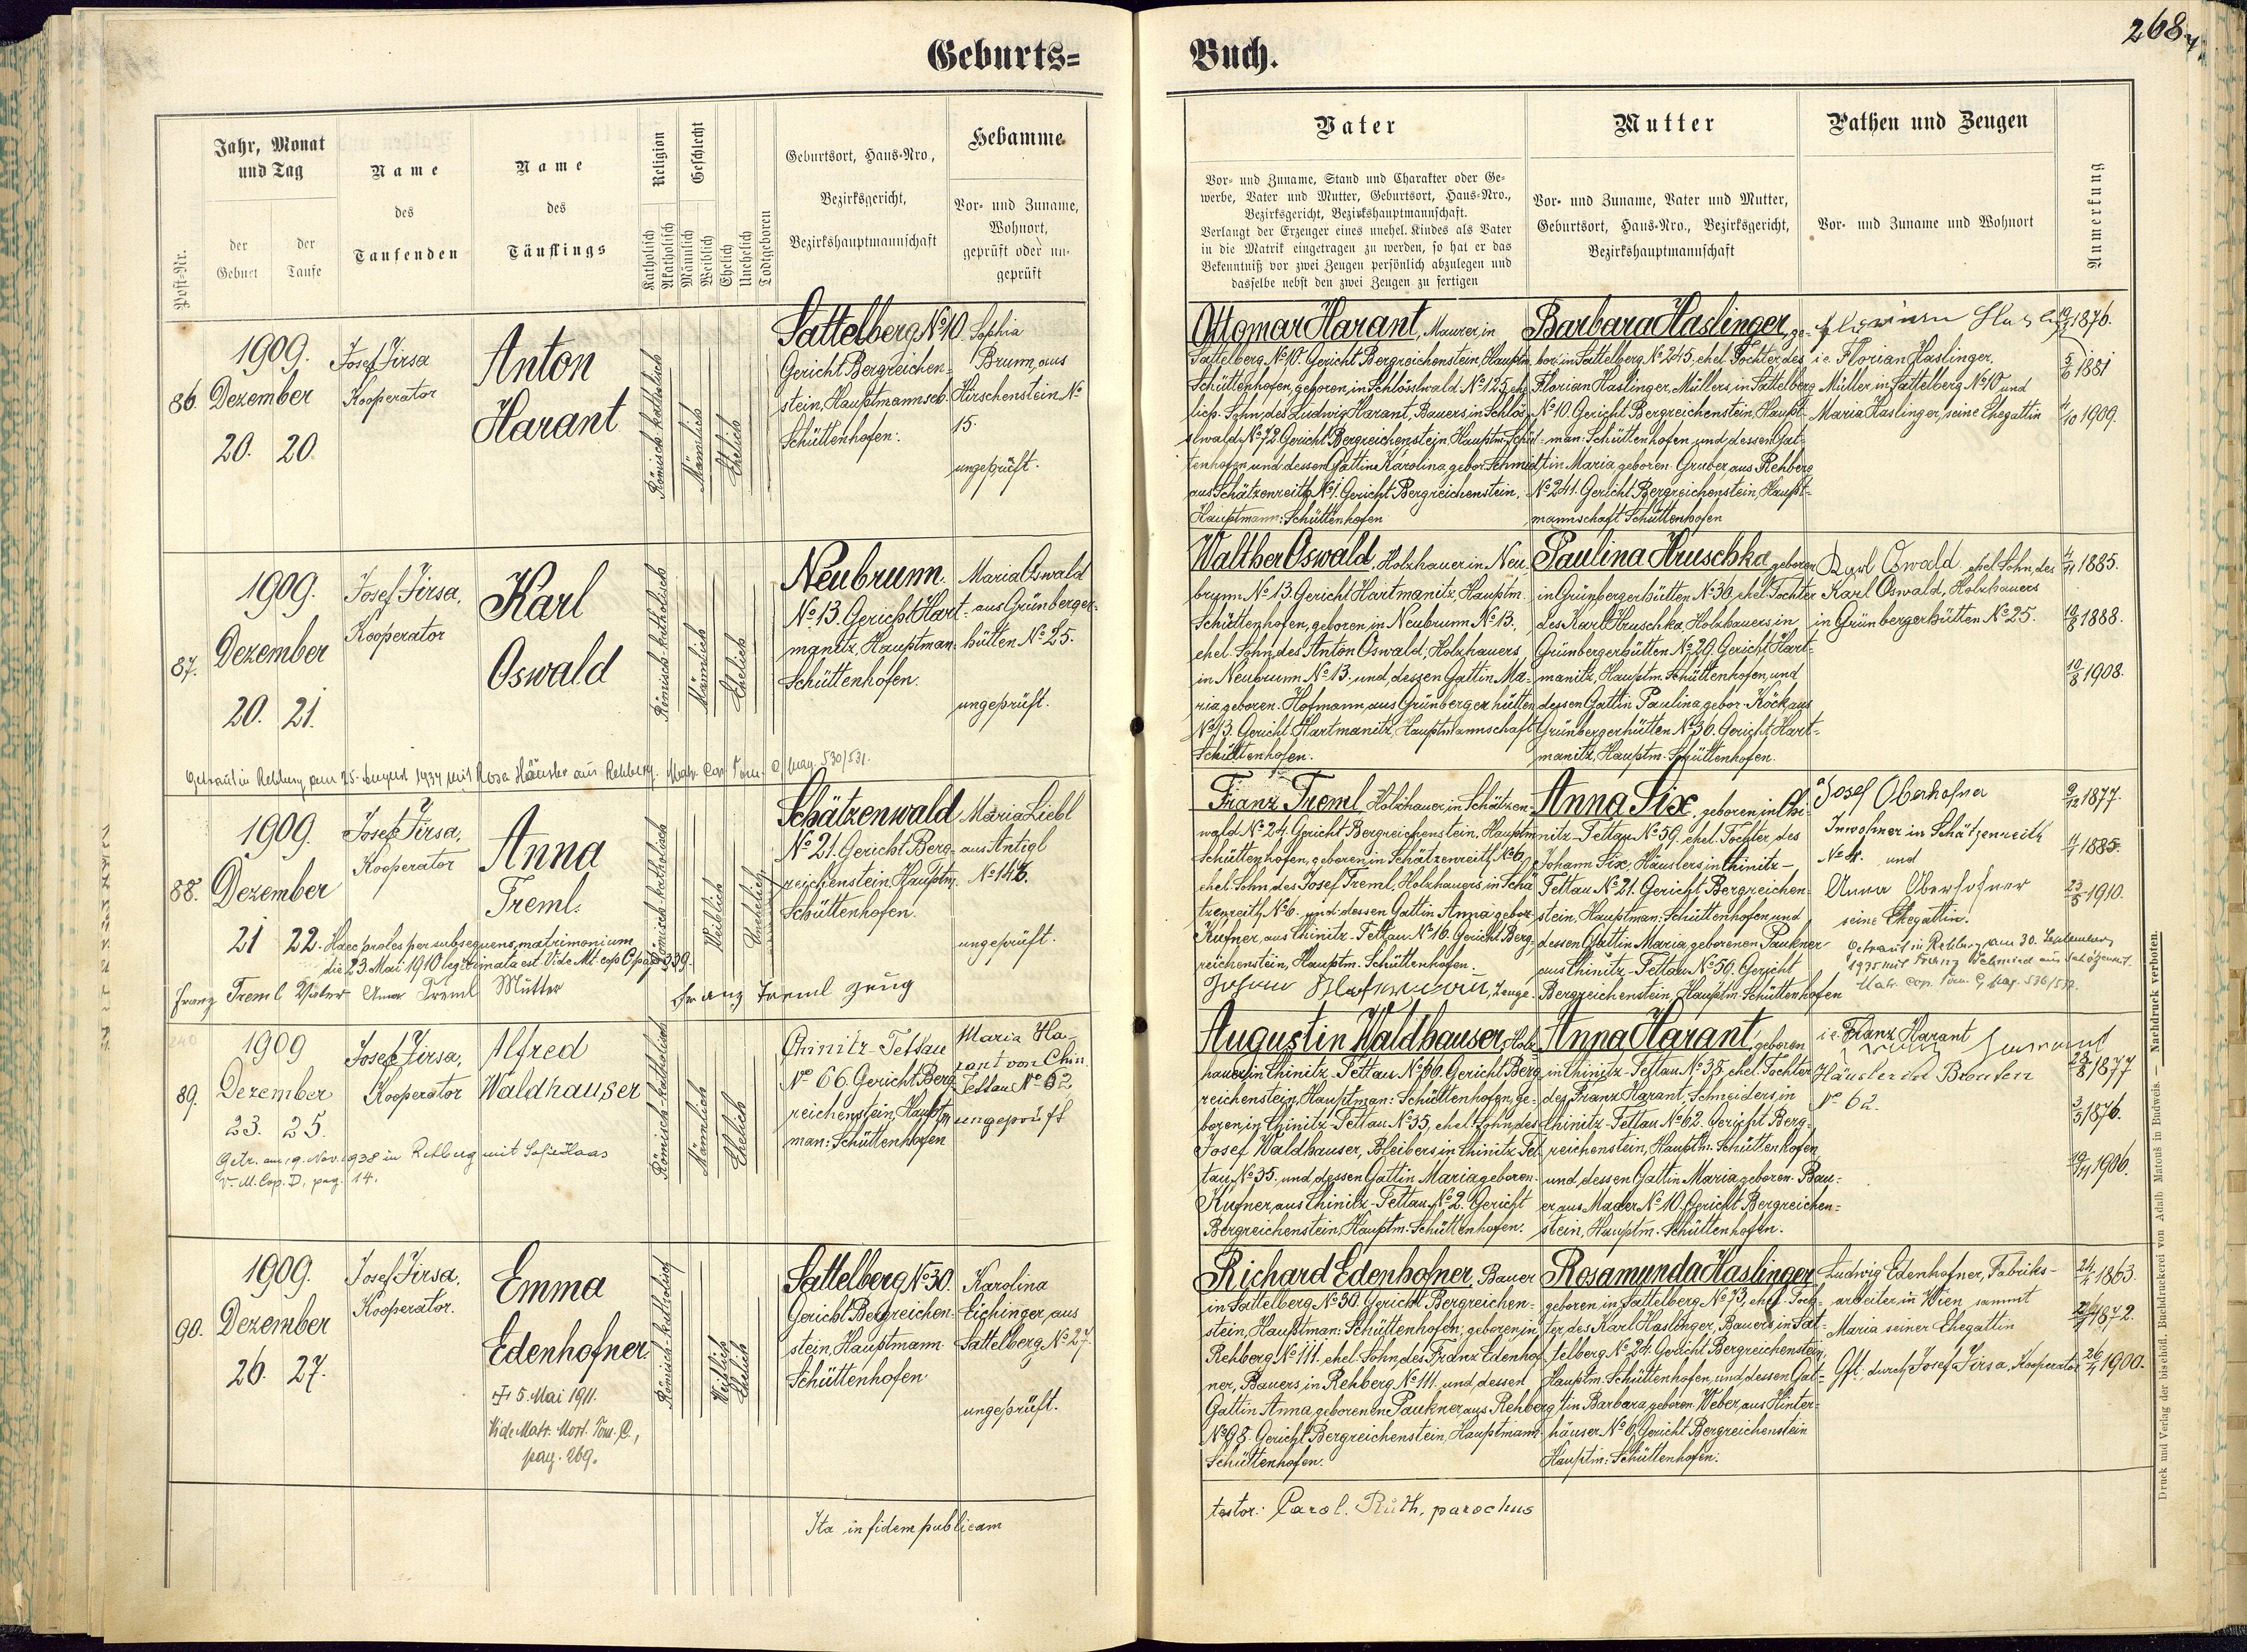 Geburts=
Buch.
268.
Post-Nr.
Jahr, Monat
und Tag
der
Geburt
der
Taufe
Name
des
Taufenden
Name
des
Täuflings
Religion
Katholisch
Akatholisch
Geschlecht
Männlich
Weiblich
Ehelich
Unehelich
Todtgeboren
Geburtsort, Haus-Nro,
Bezirksgericht,
Bezirkshauptmannschaft
Hebamme
Vor- und Zuname,
Wohnort,
geprüft oder un-
geprüft
Vater
Vor- und Zuname, Stand und Charakter oder Ge-
werbe, Vater und Mutter, Geburtsort, Haus-Nro.,
Bezirksgericht, Bezirkshauptmannschaft.
Verlangt der Erzeuger eines unehel. Kindes als Vater
in die Matrik eingetragen zu werden, so hat er das
Bekenntniß vor zwei Zeugen persönlich abzulegen und
dasselbe nebst den zwei Zeugen zu fertigen
Mutter
Vor- und Zuname, Vater und Mutter,
Geburtsort, Haus-Nro., Bezirksgericht,
Bezirkshauptmannschaft
Pathen und Zeugen
Vor- und Zuname und Wohnort
Anmerkung
86.
1909.
Dezember
20. 20.
Josef Jirsa
Kooperator
Anton
Harant
Römisch-katholisch
Männlich
Ehelich
Sattelberg No 10
Gericht Bergreichen-
stein, Hauptmannsch.
Schüttenhofen.
Sophia
Brum, aus
Hirschenstein No
15.
ungeprüft.
Ottomar Harant, Maurer, in
Sattelberg No 10. Gericht Bergreichenstein, Hauptm.
Schüttenhofen, geboren, in Schlösslwald No 125, ehe-
lich. Sohn, des Ludwig Harant, Bauers, in Schlös-
slwald No 72. Gericht Bergreichenstein, Hauptm. Schüt-
tenhofen und dessen Gattin Karolina, gebor. Schmidt
aus Schätzenreith No 1. Gericht Bergreichenstein,
Hauptmann: Schüttenhofen
Barbara Haslinger, ge-
bor. in Sattelberg No 245, ehel. Tochter, des
Florian Haslinger, Müllers, in Sattelberg
No 10. Gericht Bergreichenstein, Haupt-
man: Schüttenhofen und dessen Gat-
tin Maria, geboren Gruber aus Rehberg
No 241. Gericht Bergreichenstein, Haupt-
mannschaft Schüttenhofen
i.e. Florian Haslinger,
Müller, in Sattelberg No 10 und
Maria Haslinger, seine Ehegattin
1876.
5/6 1881
4/10 1909.
87.
1909.
Dezember
20. 21.
Josef Jirsa,
Kooperator
Karl
Oswald
Römisch-katholisch
Männlich
Ehelich
Neubrunn.
No 13. Gericht Hart-
manitz, Hauptman:
Schüttenhofen.
Maria Oswald
aus Grünberger-
hütten No 25.
ungeprüft.
Getraut in Rehberg am 25. August 1934 mit Rosa Häusler aus Rehberg. Matr. Cop. Tom. C, pag. 530/531.
Walther Oswald, Holzhauer in Neu-
brunn No 13. Gericht Hartmanitz, Hauptm.
Schüttenhofen, geboren, in Neubrunn No 13.,
ehel. Sohn, des Anton Oswald, Holzhauers
in Neubrunn No 13. und, dessen Gattin Ma-
ria geboren. Hofmann, aus Grünbergerhütten
No 13. Gericht Hartmanitz, Hauptmannschaft
Schüttenhofen.
Paulina Hruschka, geboren
in Grünbergerhütten No 36, ehel. Tochter
des Karl Hruschka, Holzhauers, in
Grünbergerhütten No 29. Gericht Hart-
manitz, Hauptm. Schüttenhofen, und
dessen Gattin Paulina, gebor. Köck aus
Grünbergerhütten No 36. Gericht Hart-
manitz, Hauptm. Schüttenhofen.
Karl Oswald, ehel. Sohn, des
Karl Oswald, Holzhauers
in Grünbergerhütten No 25.
1885.
1888.
1908.
88.
1909.
Dezember
21 22.
Josef Jirsa,
Kooperator
Anna
Treml.
Römisch-katholisch
Weiblich
Unehelich
Schätzenwald
No 21. Gericht Berg-
reichenstein, Hauptm.
Schüttenhofen.
Maria Liebl
aus Antigl
No 146.
ungeprüft.
Haec proles per subsequens matrimonium
die 23. Mai 1910 legitimata est. Vide Mt. cop. C pag. 339.
Franz Treml Vater Anna Treml Mütter
Franz Treml Zeug
Franz Treml, Holzhauer, in Schätzen-
wald No 24. Gericht Bergreichenstein, Hauptm.
Schüttenhofen, geboren, in Schätzenreith No 6,
ehel. Sohn, des Josef Treml, Holzhauers, in Schä-
tzenreith No 6. und dessen Gattin Anna gebor.
Kufner, aus Chinitz-Tettau No 16. Gericht Berg-
reichenstein, Hauptm. Schüttenhofen.
Zeuge.
Anna Six, geboren in Chi-
nitz-Tettau No 59. ehel. Tochter des
Johann Six, Häuslers in Chinitz-
Tettau No 21. Gericht Bergreichen-
stein, Hauptman: Schüttenhofen und
dessen Gattin Maria, geborenen Paukner
aus Chinitz-Tettau No 59. Gericht
Bergreichenstein, Hauptm. Schüttenhofen
Josef Oberhofner
Inwohner in Schätzenreith
No 4. und
Anna Oberhofner
seine Ehegattin.
Getraut in Rehberg am 30. September
1935 mit Franz Schmied aus Schätzenrt.
Matr. cop. Tom. C, pag. 536/537.
9/12 1877.
1885.
23/5 1910.
89.
1909
Dezember
23. 25.
Josef Jirsa,
Kooperator
Alfred
Waldhauser
Römisch-katholisch
Männlich
Ehelich
Chinitz-Tettau
No 66. Gericht Berg-
reichenstein, Haupt-
man: Schüttenhofen
Maria Ha-
rant von Chin.
Tettau No 62
ungeprüft
Getr. am 9. Nov. 1938 in Rehberg mit Sofie Haas
V. M. Cop. D, pag. 14.
Augustin Waldhauser, Holz-
hauer, in Chinitz-Tettau No 66. Gericht Berg-
reichenstein, Hauptman: Schüttenhofen, ge-
boren, in Chinitz-Tettau No 35, ehel. Sohn, des
Josef Waldhauser, Bleibers in Chinitz-Tet-
tau No 35. und, dessen Gattin Maria geboren.
Kufner, aus Chinitz-Tettau No 2. Gericht
Bergreichenstein, Hauptm. Schüttenhofen.
Anna Harant, geboren
in Chinitz-Tettau No 35, ehel. Tochter
des Franz Harant, Schneiders, in
Chinitz-Tettau No 62. Gericht Berg-
reichenstein, Hauptm. Schüttenhofen
und dessen Gattin Maria, geboren. Bau-
er aus Mader No 10. Gericht Bergreichen-
stein, Hauptm. Schüttenhofen.
i.e. Franz Harant
Häusler in
No 62.
28/8 1877
1876.
1906.
90.
1909.
Dezember
26. 27.
Josef Jirsa,
Kooperator.
Emma
Edenhofner.
† 5. Mai 1911.
Vide Matr. Mort. Tom. C.,
pag. 269.
Römisch-katholisch
Weiblich
Ehelich
Sattelberg No 30.
Gericht Bergreichen-
stein, Hauptmann.
Schüttenhofen
Karolina
Eichinger, aus
Sattelberg No 27.
ungeprüft.
Richard Edenhofner, Bauer
in Sattelberg No 30. Gericht Bergreichen-
stein, Hauptman: Schüttenhofen; geboren in
Rehberg No 111. ehel. Sohn, des Franz Edenhof-
ner, Bauers, in Rehberg No 111. und, dessen
Gattin Anna, geborenen Paukner aus Rehberg
No 98. Gericht Bergreichenstein, Hauptmann.
Schüttenhofen.
Rosamunda Haslinger
geboren in Sattelberg No 73, ehel. Toch-
ter, des Karl Haslinger, Bauers, in Sat-
telberg No 24. Gericht Bergreichenstein,
Hauptm. Schüttenhofen, und, dessen Gat-
tin Barbara, geboren. Weber, aus Hinter-
häuser No 6. Gericht Bergreichenstein
Hauptm: Schüttenhofen.
Ludwig Edenhofner, Fabriks-
arbeiter, in Wien, sammt
Maria seiner Ehegattin
Gft. durch Josef Jirsa, Kooperator
1863.
1872.
1900.
Ita in fidem publicam
testor: Carol. Ruth, parochus
Druck und Verlag der bischöfl. Buchdruckerei von Adalb. Matouš in Budweis. — Nachdruck verboten.